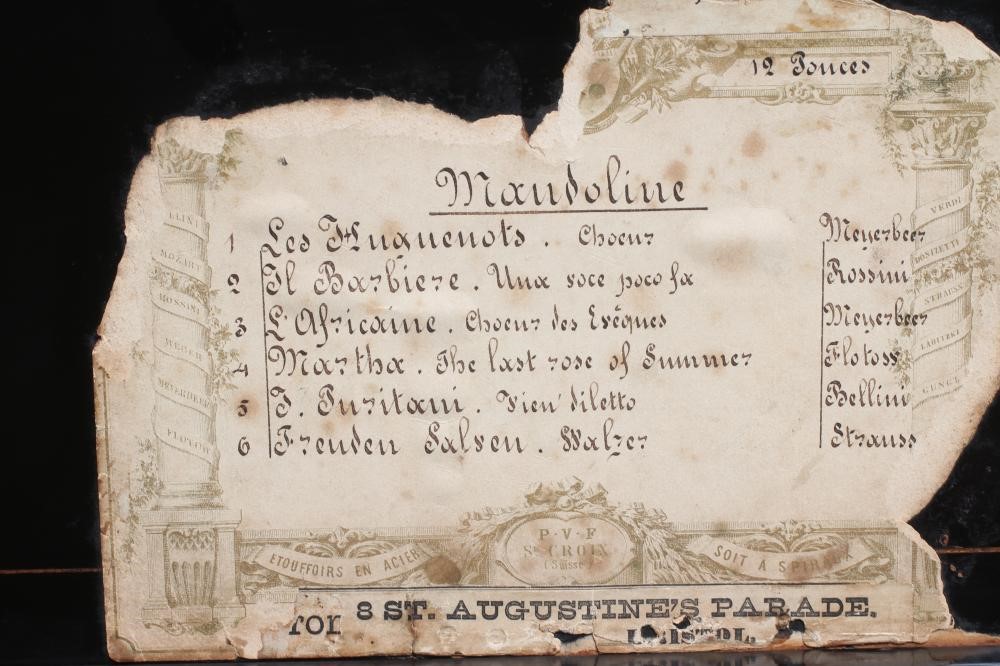 12 Pouces
Mandoline
1 Les Huguenots. Choeur Meyerbeer
2 Il Barbiere. Una voce poco fa Rossini
3 L'Africaine. Choeur des Evêques Meyerbeer
4 Martha. The last rose of Summer Flotow
5 I. Puritani. Vien diletto Bellini
6 Freuden Salven. Walzer Strauss
LLINI
MOZART
ROSSINI
WEBER
MEYERBEER
FLOTOW
VERDI
DONIZETTI
STRAUSS
LABITZKI
GUNGL
P·V·F
Ste CROIX
(Suisse)
ETOUFFOIRS EN ACIER
SOIT A SPIRAUX
for 8 ST. AUGUSTINE'S PARADE.
BRISTOL.